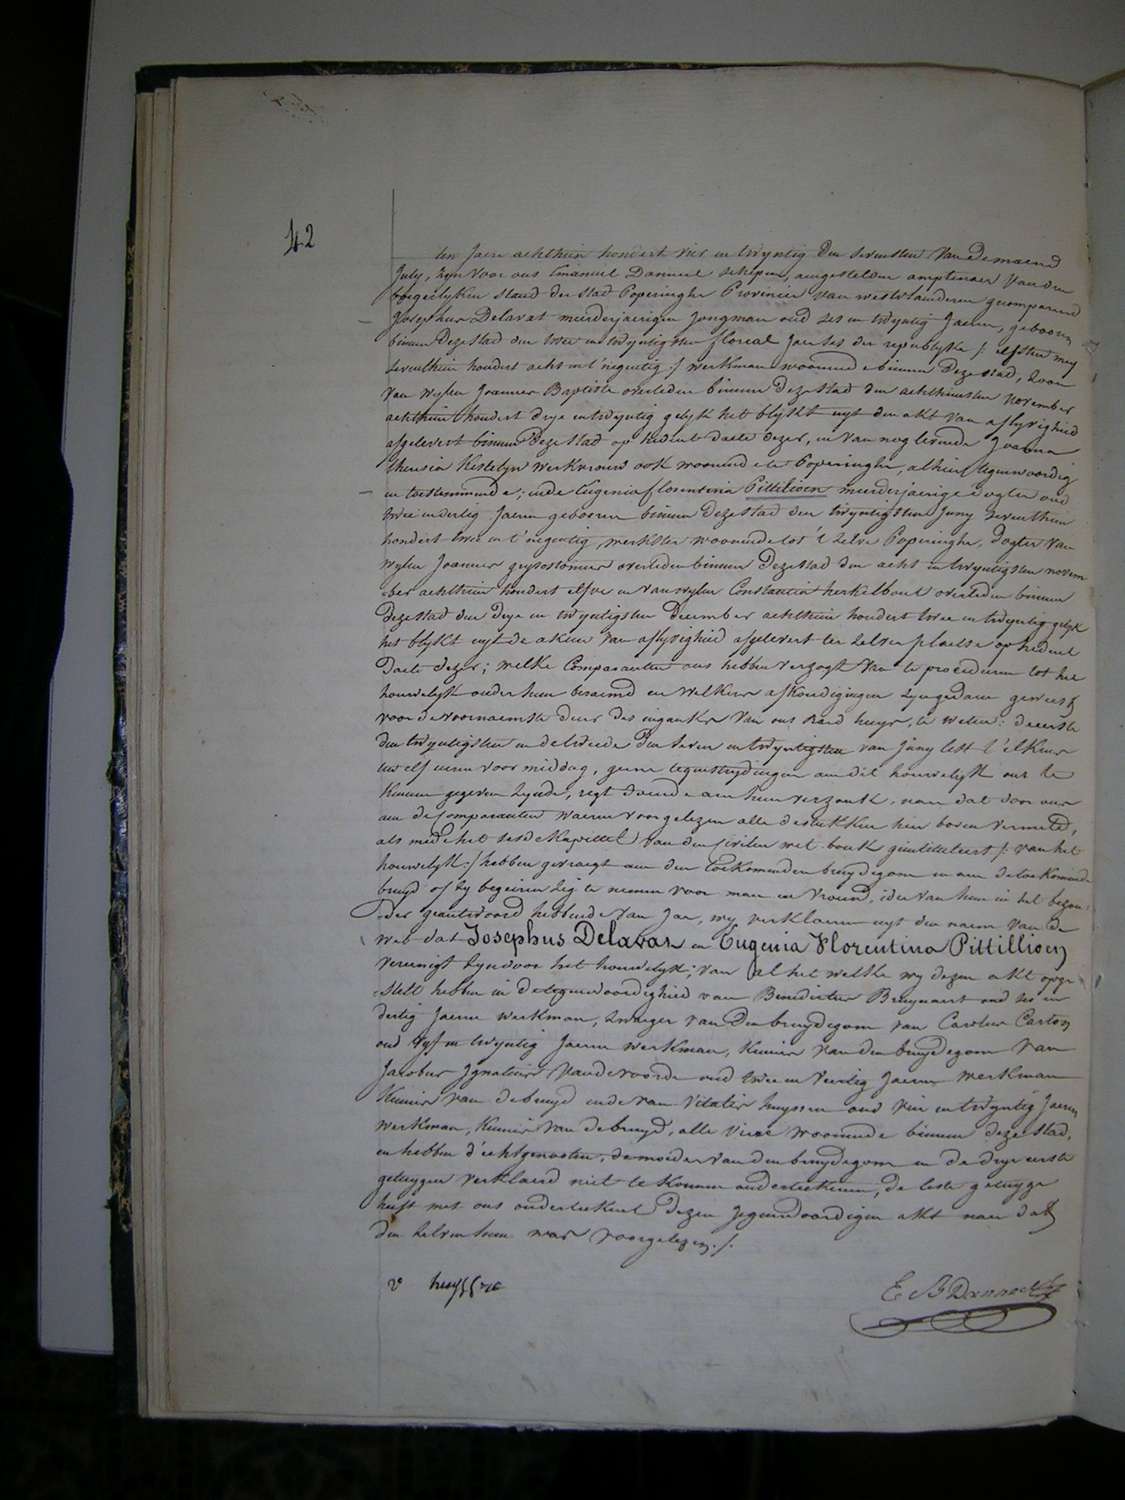 42
den Jaere achthien hondert vier en twyntig den sevensten van de maend
July, zyn voor ons Emanuel Danneel schepen, aengestelden amptenaer van den
borgerlyken stand der stad Poperinghe Provincie van westvlaanderen gecompareerd
Josephus Delavat meerderjaerigen jongman oud ses en twyntig Jaeren, geboren
binnen deze stad den twee en twyntigsten floreal jaer ses der republyke /: elfsten mey
seventhien hondert acht en t'negentig :/ werkman woonende binnen deze stad, zoon
van wylen Joannes Baptiste overleden binnen deze stad den achthiensten november
achthien hondert drye en twyntig gelyk het blykt uyt den akt van aflyvigheid
afgelevert binnen deze stad op hedent daete dezer, en van nog levende Joanna
theresia Kestelyn werkvrouw ook woonende te Poperinghe, alhier tegenwoordig
en toestemmende; ende Eugenia florentina Pittilioen meerderjaerige dogter oud
twee en dertig Jaeren geboren binnen deze stad den twyntigsten Juny seventhien
hondert twee en t'negentig werkster woonende tot 't zelve Poperinghe, dogter van
wylen Joannes overleden binnen deze stad den acht en twyntigsten novem
ber achthien hondert elfve en van wylen Constantia herkelbout overleden binnen
deze stad den drye en twyntigsten december achthien hondert twee en twyntig gelyk
het blykt uyt de akten van aflyvigheid afgelevert ter zelver plaetse op hedent
daete dezer; welke Comparanten ons hebben verzogt van te procederen tot het
houwelyk onder hun beraemd en welkers afkondigingen zyn gedaen geweest
voor de voornaemste deure des inganks van ons Raed huys, te weten: de eerste
den twyntigsten en de tweede den seven en twyntigsten van Juny lest t'elkens
ten elf uren voor middag, geene tegenstrydingen aen dit houwelyk ons te
kennen gegeven zynde, regt doende aen hun verzoek, naer dat door ons
aen de Comparanten waeren voorgelezen alle de stukken hier boven vermeld,
als mede het sesde kapittel van den sivilen wet-bouk geintituleert /: van het
houwelyk :/ hebben gevraegt aen den toekomenden bruydegom en aen de toekomende
bruyd of zy begeiren zig te nemen voor man en vrouw, ider van hun in het bezon-
der geantwoord hebbende van Jae, wy verklaeren uyt den naem van de
wet dat Josephus Delavat en Eugenia Florentina Pittillioen
vereenigt zyn door het houwelyk; van al het welke wy dezen akt opge-
stelt hebben in de tegenwoordigheid van Benedictus Bruynaert oud ses en
dertig Jaeren werkman, zwager van den bruydegom van Carolus Carton
oud vyf en twyntig Jaeren werkman, kennis van den bruydegom van
Jacobus Ignatius Vandevoorde oud twee en veertig Jaeren werkman
kennis van de bruyd ende van Vitalis huyssen oud vier en twyntig Jaeren
werkman, kennis van de bruyd, alle viere woonende binnen deze stad,
en hebben d'echtgenooten, de moeder van den bruydegom en de drye eerste
getuygen verklaerd niet te konnen onderteekenen, de leste getuyge
heeft met ons onderteekent dezen jegenwoordigen akt naer dat
den zelven hun was voorgelezen ./.
v huyssene